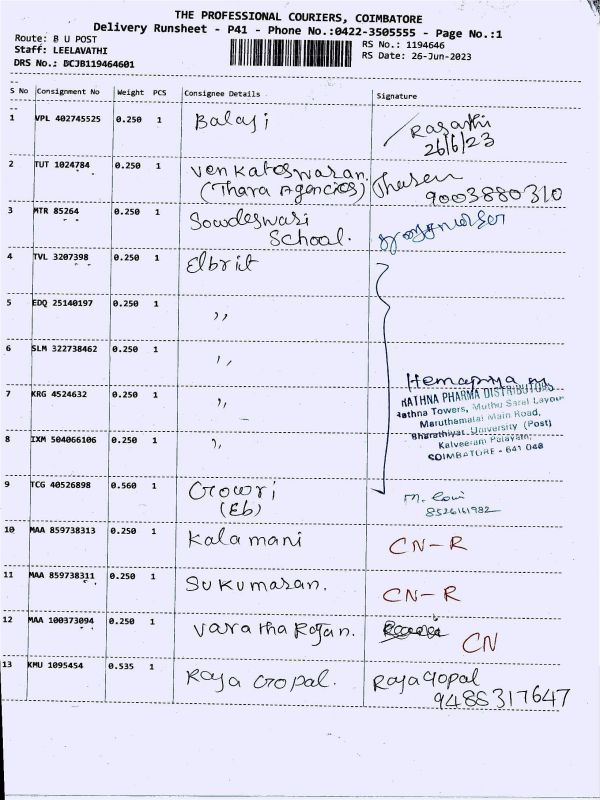 THE PROFESSIONAL COURIERS, COIMBATORE
Delivery Runsheet - P41 - Phone No.:0422-3505555 - Page No.:1
Route: B U POST
RS No.: 1194646
Staff: LEELAVATHI
RS Date: 26-Jun-2023
DRS No.: BCJB119464601
S No Consignment No Weight PCS Consignee Details Signature
1 VPL 402745525 0.250 1 Balaji Rasathi
26/6/23
2 TUT 1024784 0.250 1 Venkateswaran.
(Thara Agencies)
9003880310
3 MTR 85264 0.250 1 Sowdeswari
School.
4 TVL 3207398 0.250 1 Elbrit
5 EDQ 25140197 0.250 1 ,,
6 SLM 322738462 0.250 1 ,,
7 KRG 4524632 0.250 1 ,,
Hemapriya M
RATHNA PHARMA DISTRIBUTORS
Rathna Towers, Muthu Sarel Layout
Maruthamalai Main Road,
Bharathiyar University (Post)
Kalveeram Palayam,
COIMBATORE - 641 046
8 IXM 504066106 0.250 1 ,,
9 TCG 40526898 0.560 1 Gowri
(Eb)
8526161982
10 MAA 859738313 0.250 1 Kalamani CN-R
11 MAA 859738311 0.250 1 Sukumaran. CN-R
12 MAA 100373094 0.250 1 Varatha Rajan. CN
13 KMU 1095454 0.535 1 Raja Gopal. Rajagopal
9488317647